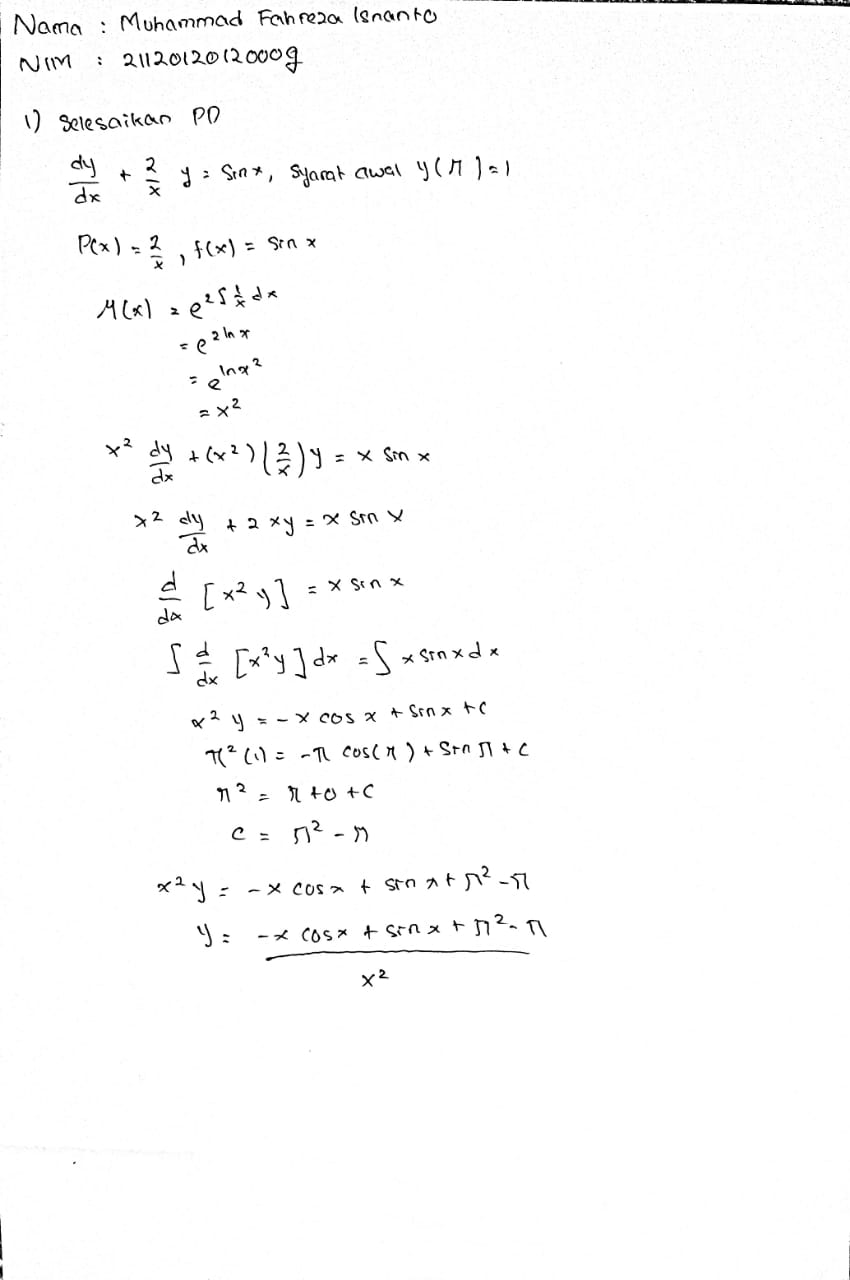 Nama : Muhammad Fahreza Isnanto
NIM : 21120120120009
1) Selesaikan PD
dy/dx + 2/x y = sin x, Syarat awal y(π) = 1
P(x) = 2/x , f(x) = sin x
M(x) = e^(2∫ 1/x dx)
= e^(2 ln x)
= e^(ln x²)
= x²
x² dy/dx + (x²)(2/x)y = x sin x
x² dy/dx + 2xy = x sin x
d/dx [x² y] = x sin x
∫ d/dx [x²y] dx = ∫ x sin x dx
x² y = -x cos x + sin x + c
π² (1) = -π cos(π) + sin π + c
π² = π + 0 + c
c = π² - π
x² y = -x cos x + sin x + π² - π
y = (-x cos x + sin x + π² - π)/x²